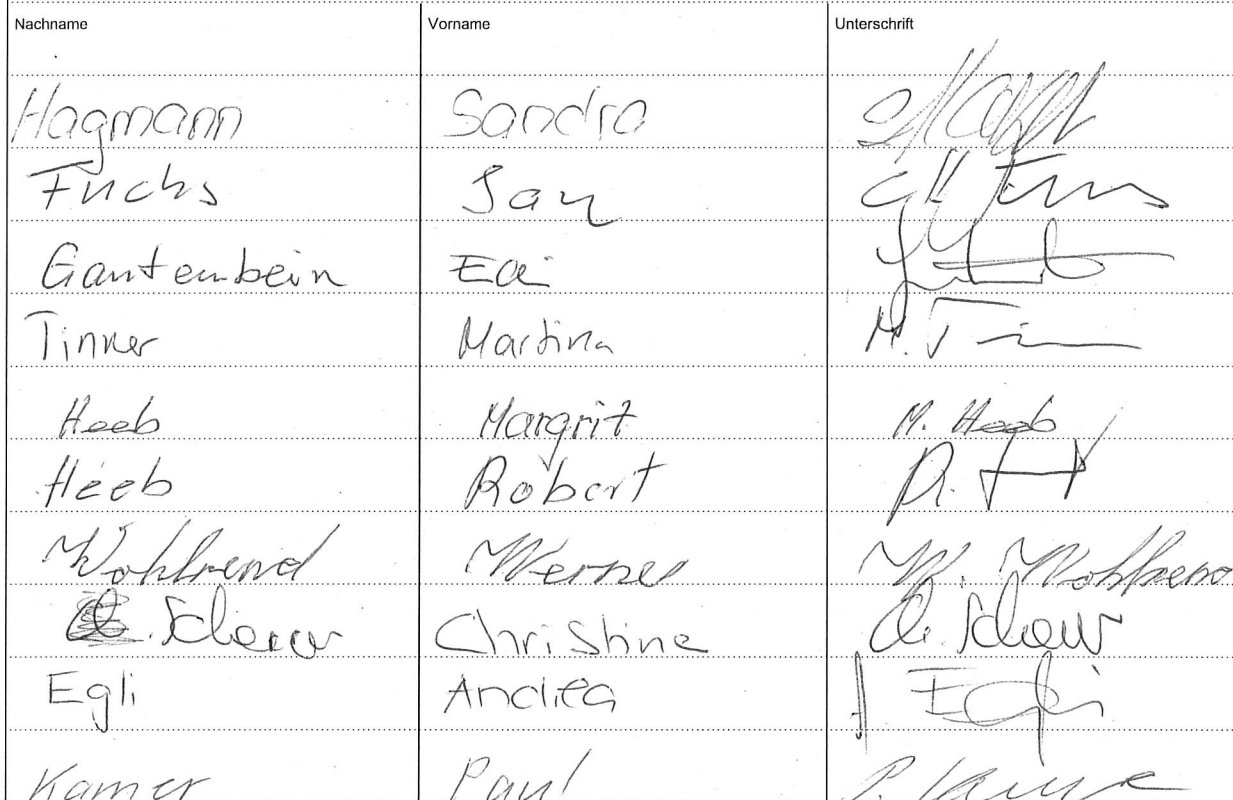 Nachname Vorname Unterschrift
Hagmann Sandra
Fuchs Jan
Gantenbein Edi
Tinner Martina M. Tinner
Heeb Margrit M. Heeb
Heeb Robert R.
Wohlwend Werner W. Wohlwend
Scherrer Christine Ch. Scherrer
Egli Andrea A Egli
Kamer Paul P. Kamer